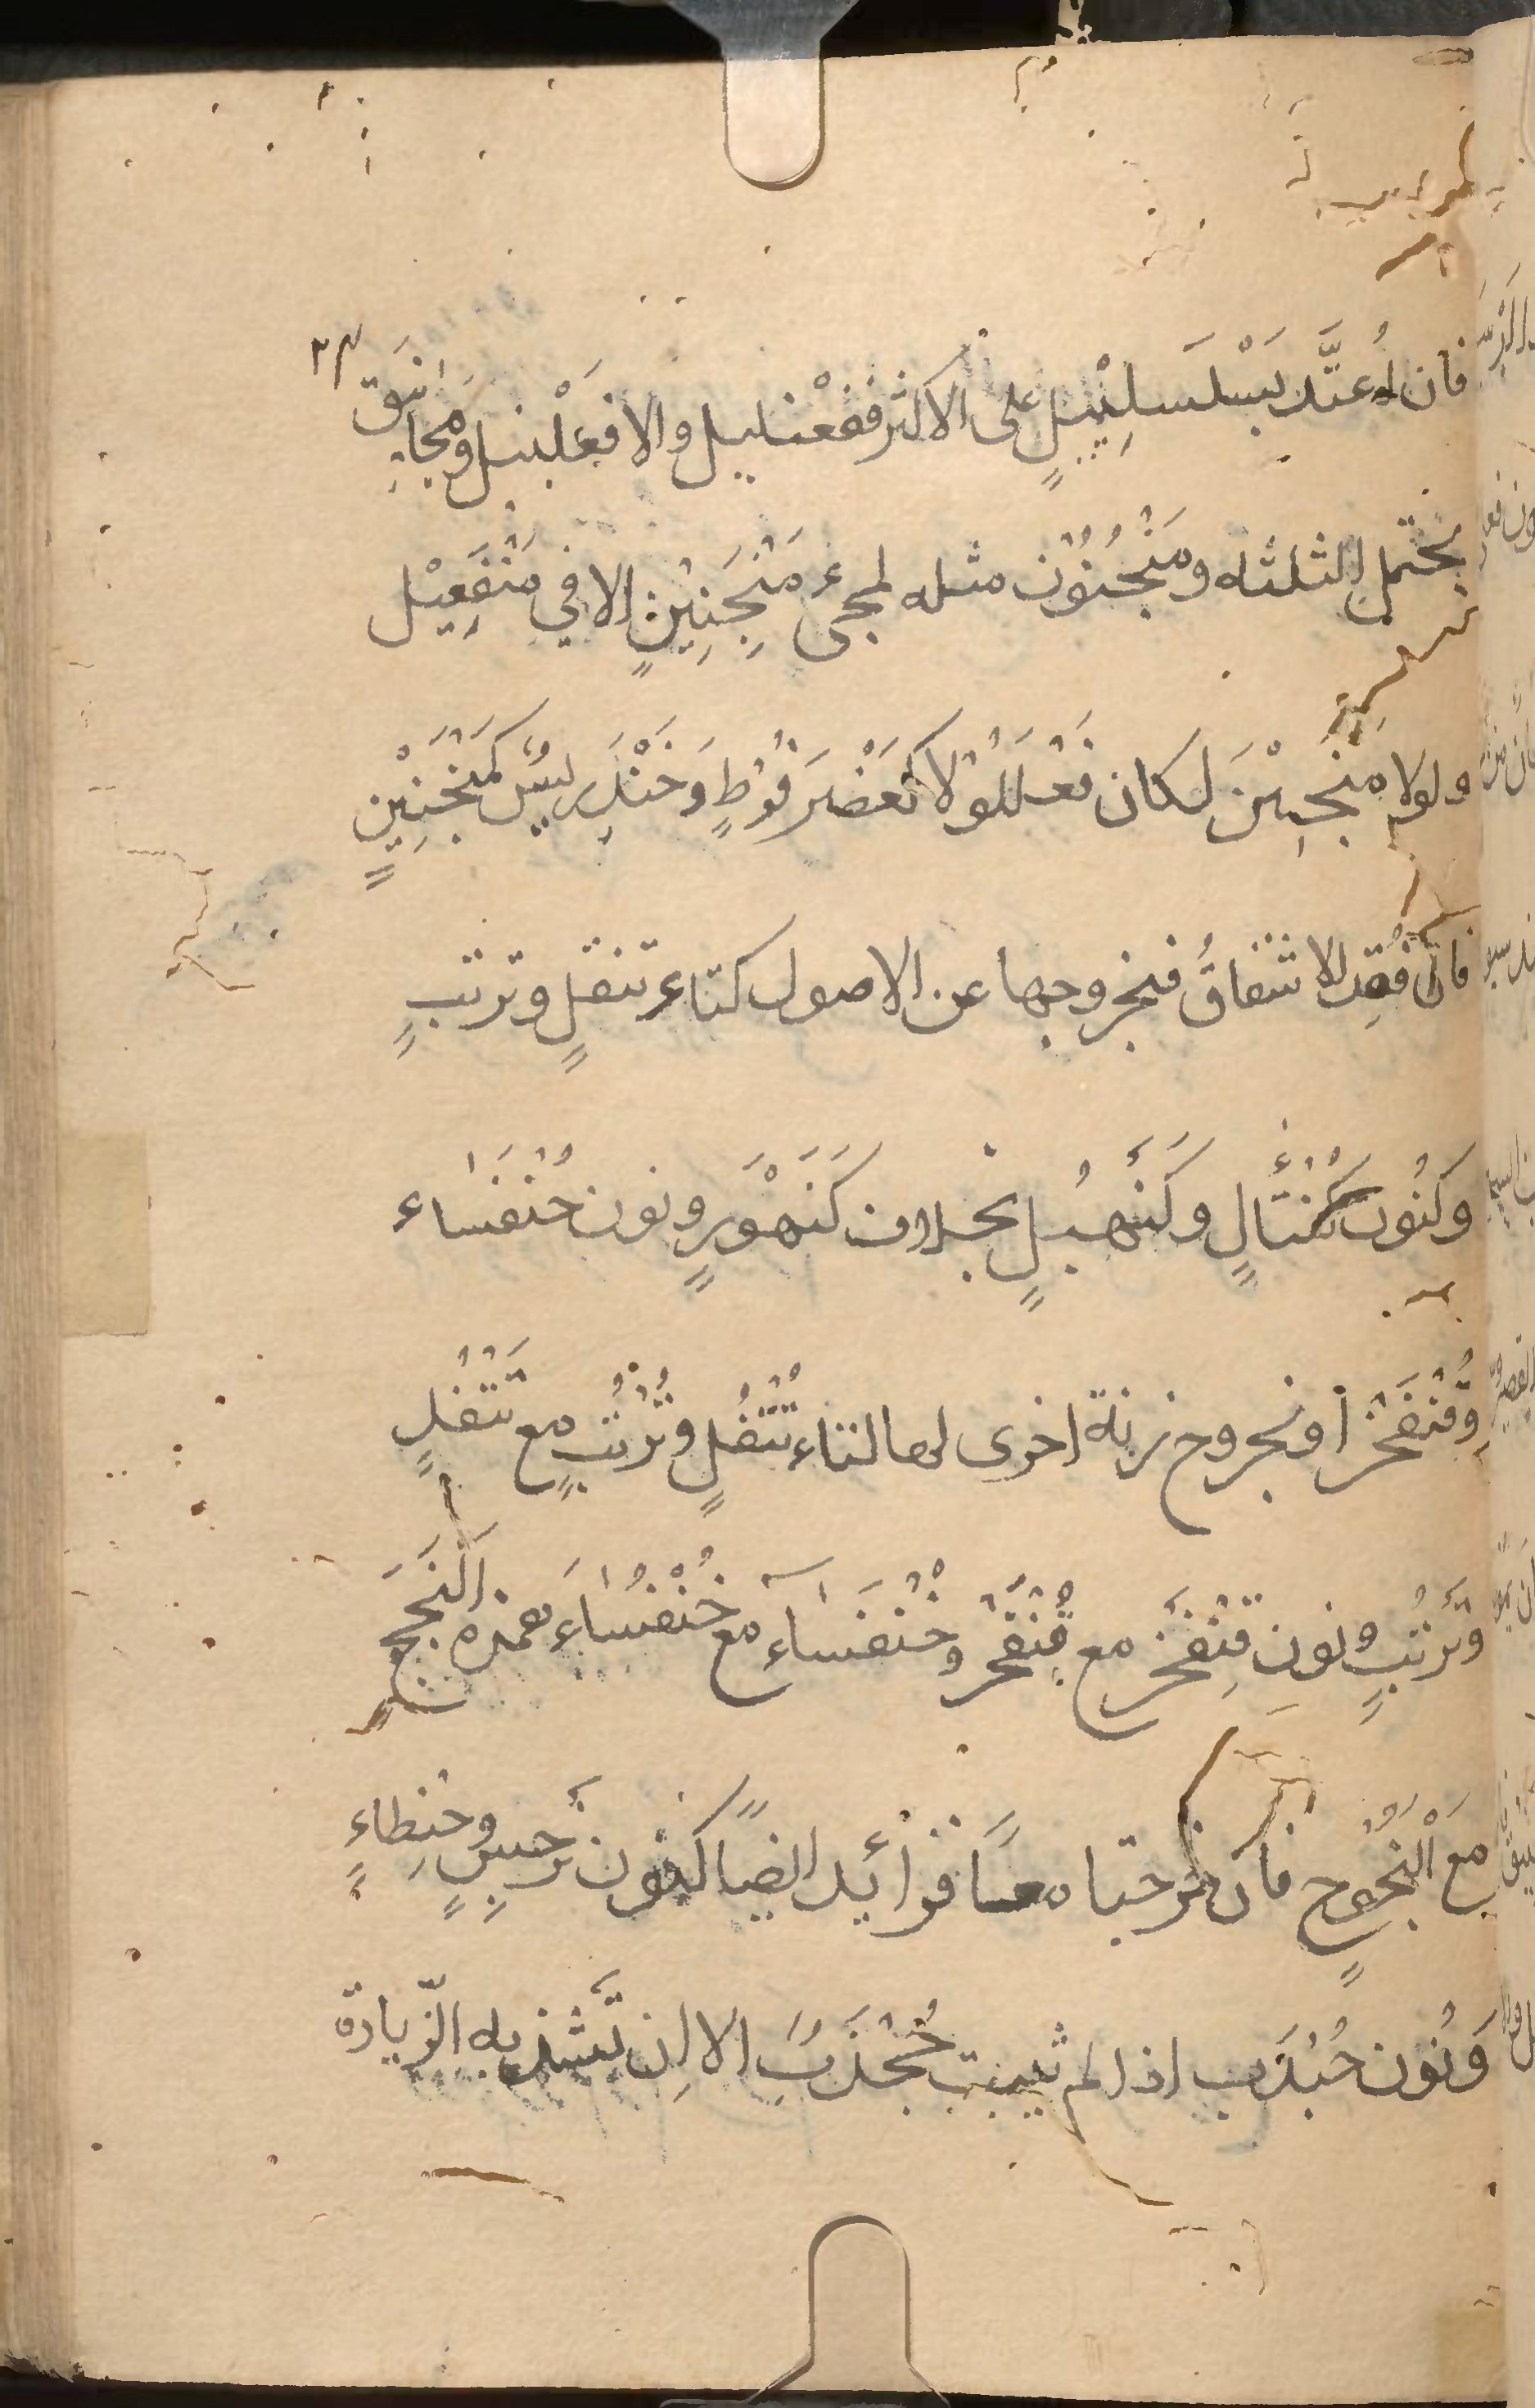 ٢٣
فان اُعتَّد بَسْلسَلِيْيلٍ على الاكثر ففَعْنَليل والا فعَلْنيل ومجانيق
يحتمل الثلثه ومَنْجُنُوْن مثله لمجىء مَنْجَنِيْنٍ الا في مَنْفَعِيْل
ولولا مَنْجِيْن لكان فَعْلَلُوْلا كعَضْرَفُوْطٍ وَخَنْدَرِيسٌ كمَنْجَنِيْنٍ
فان فُقِد الاشتقاقُ فبخروجها عن الاصول كتاءِ تتفلٍ وترتبٍ
وكنُون كُنْتَأْلٍ وكَنَهْبُلٍ بخلاف كَنَهْوَرٍ ونون خُنْفَسَاء
وقُنْفَخْرٌ أو بخروج زنة اخرى لها كتاء تُتْفُلٍ وتُرْتُبٍ مع تَتْفُلٍ
وتَرْتُبٍ ونونِ قِنْفَخْرٍ مع قُنْفَخْرٍ وخُنْفَسَاءَ مع خُنْفُسَاءَ وهمزه اَلَنْجَجٍ
مع اَلَنْجُوْجٍ فان خرجتا معًا فزائد ايضًا كنون نَرْجِسٍ وحِنطاءٍ
وَنُوْن جُنْدَب اذا لم يثبت جُخْدَبٌ الا ان تَشذ به الزّيادة